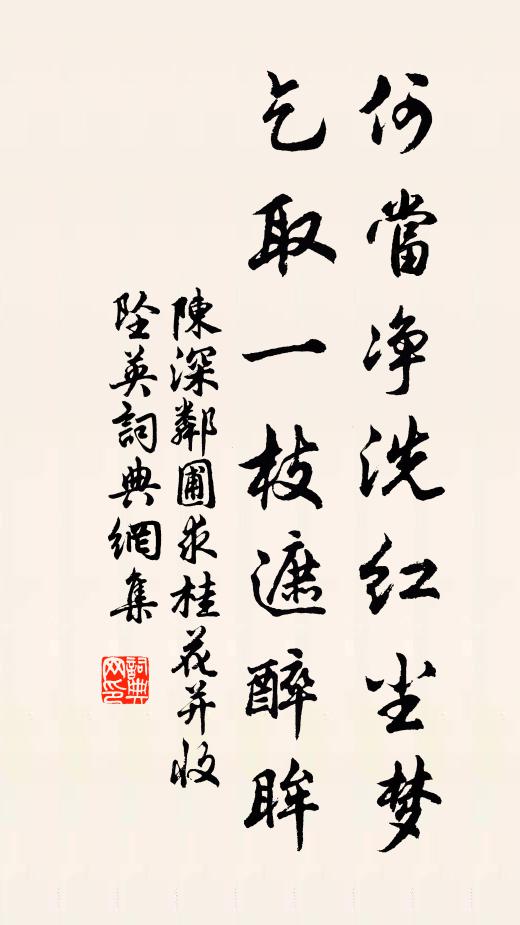 何當净洗红尘梦
乞取一枝遮醉眸
陳深鄰圃求桂花并收
陞英詞典網集
詞典网印